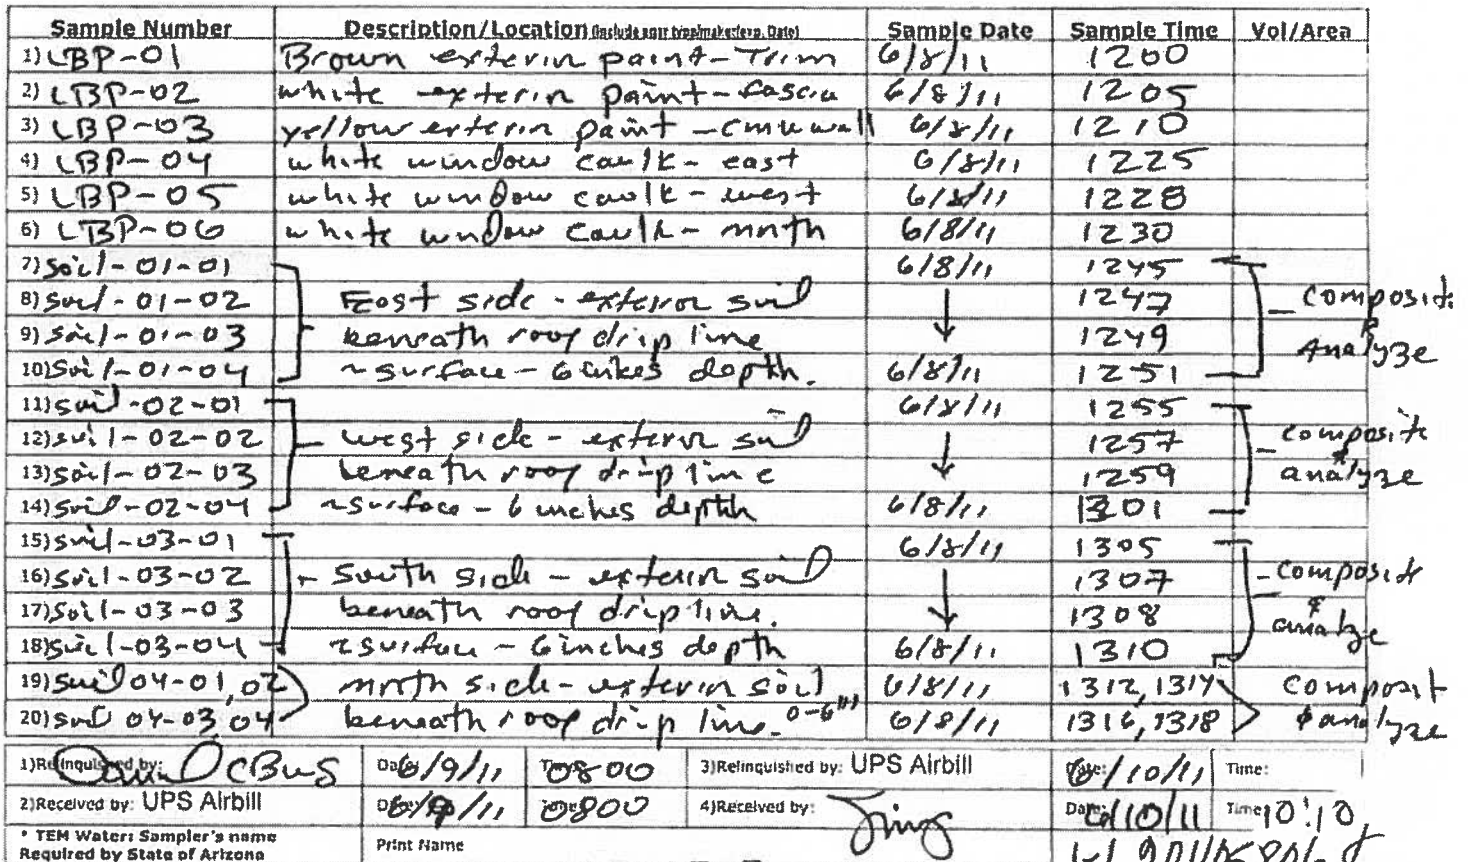 Sample Number Description/Location Sample Date Sample Time Vol/Area
1) LBP-01 Brown exterior paint-Trim 6/8/11 1200
2) LBP-02 white exterior paint-fascia 6/8/11 1205
3) LBP-03 yellow exterior paint-cmu wall 6/8/11 1210
4) LBP-04 white window caulk-east 6/8/11 1225
5) LBP-05 white window caulk-west 6/8/11 1228
6) LBP-06 white window caulk-north 6/8/11 1230
7) Soil-01-01 6/8/11 1245
8) Soil-01-02 East side-exterior soil 1247 composite
9) Soil-01-03 beneath roof drip line 1249 & Analyze
10) Soil-01-04 ~surface-6 inches depth. 6/8/11 1251
11) Soil-02-01 6/8/11 1255
12) Soil-02-02 west side-exterior soil 1257 composite
13) Soil-02-03 beneath roof drip line 1259 & analyze
14) Soil-02-04 ~surface-6 inches depth 6/8/11 1301
15) Soil-03-01 6/8/11 1305
16) Soil-03-02 South side-exterior soil 1307 composite
17) Soil-03-03 beneath roof drip line. 1308 &
18) Soil-03-04 ~surface-6 inches depth 6/8/11 1310 analze
19) Soil 04-01, 02 north side-exterior soil 6/8/11 1312, 1314 composit
20) Soil 04-03, 04 beneath roof drip line. 0-6" 6/8/11 1316, 1318 & analyze
1)Relinquished by: Date: 6/9/11 Time: 0800 3)Relinquished by: UPS Airbill Date: 6/10/11 Time:
2)Received by: UPS Airbill Date: 6/9/11 Time: 0800 4)Received by: Date: 6/10/11 Time: 10:10
* TEM Water: Sampler's name
Required by State of Arizona
Print Name